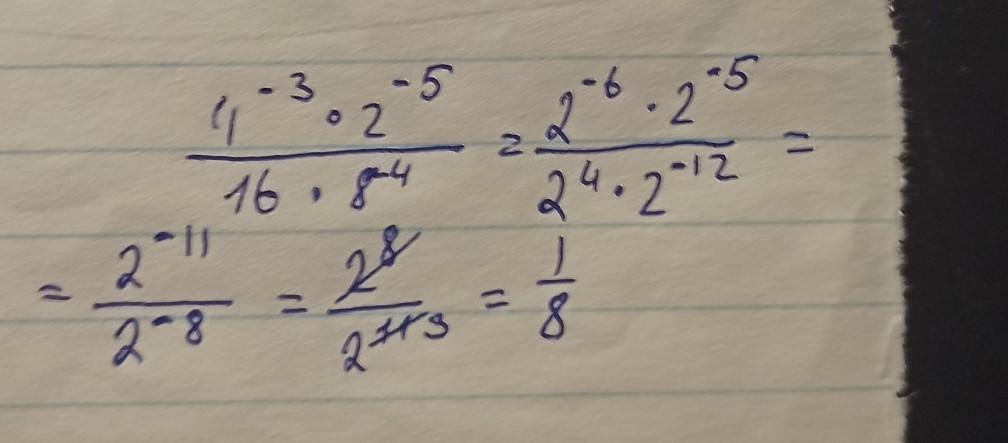 4⁻³ · 2⁻⁵ / 16 · 8⁻⁴ = 2⁻⁶ · 2⁻⁵ / 2⁴ · 2⁻¹² =
= 2⁻¹¹ / 2⁻⁸ = 2⁸ / 2¹¹ ³ = 1 / 8